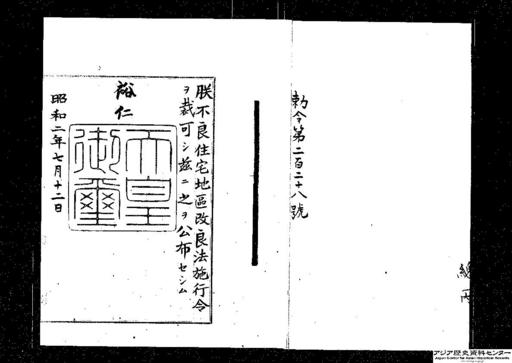 勅令第二百二十八號
朕不良住宅地區改良法施行令
ヲ裁可シ茲ニ之ヲ公布セシム
裕仁
天皇御璽
昭和二年七月十二日
アジア歴史資料センター
Japan Center for Asian Historical Records